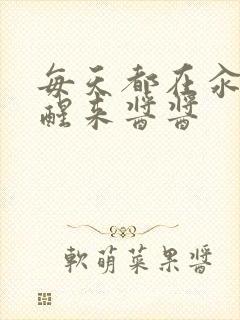 每天都在汆
醒来酱酱
軟萌菜果醬